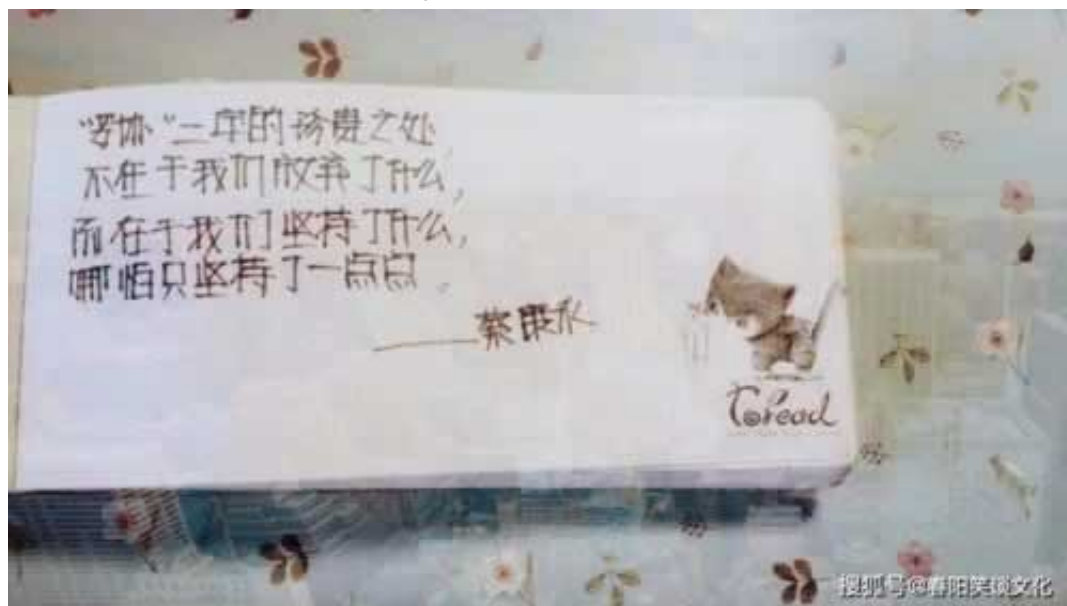 “妥协”二字的珍贵之处
不在于我们放弃了什么，
而在于我们坚持了什么，
哪怕只坚持了一点点。
——蔡康永
Toread
搜狐号@春阳笑谈文化